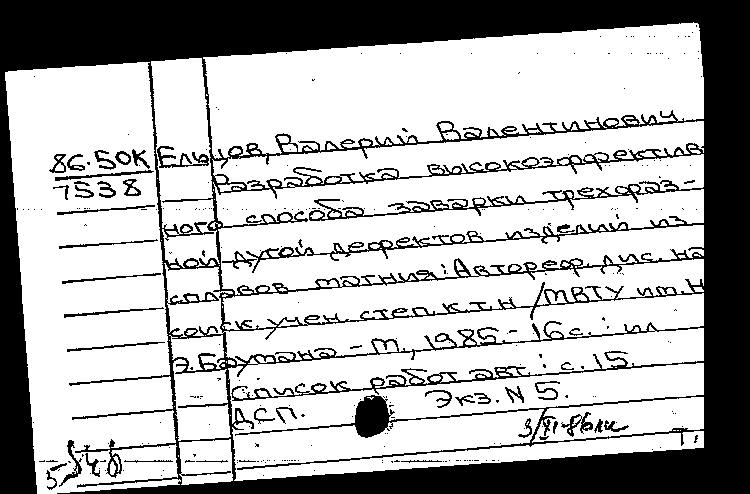 86.50К Ельцов, Валерий Валентинович
7538 Разработка высокоэффектив
ного способа заварки трехфаз-
ной дугой дефектов изделий из
сплавов магния: Автореф. дис. на
соиск. учен. степ. к.т.н /МВТУ им. Н
Э. Баумана - М., 1985. - 16с. : ил
Список работ авт. : с. 15.
ДСП. Экз. N 5.
Т.